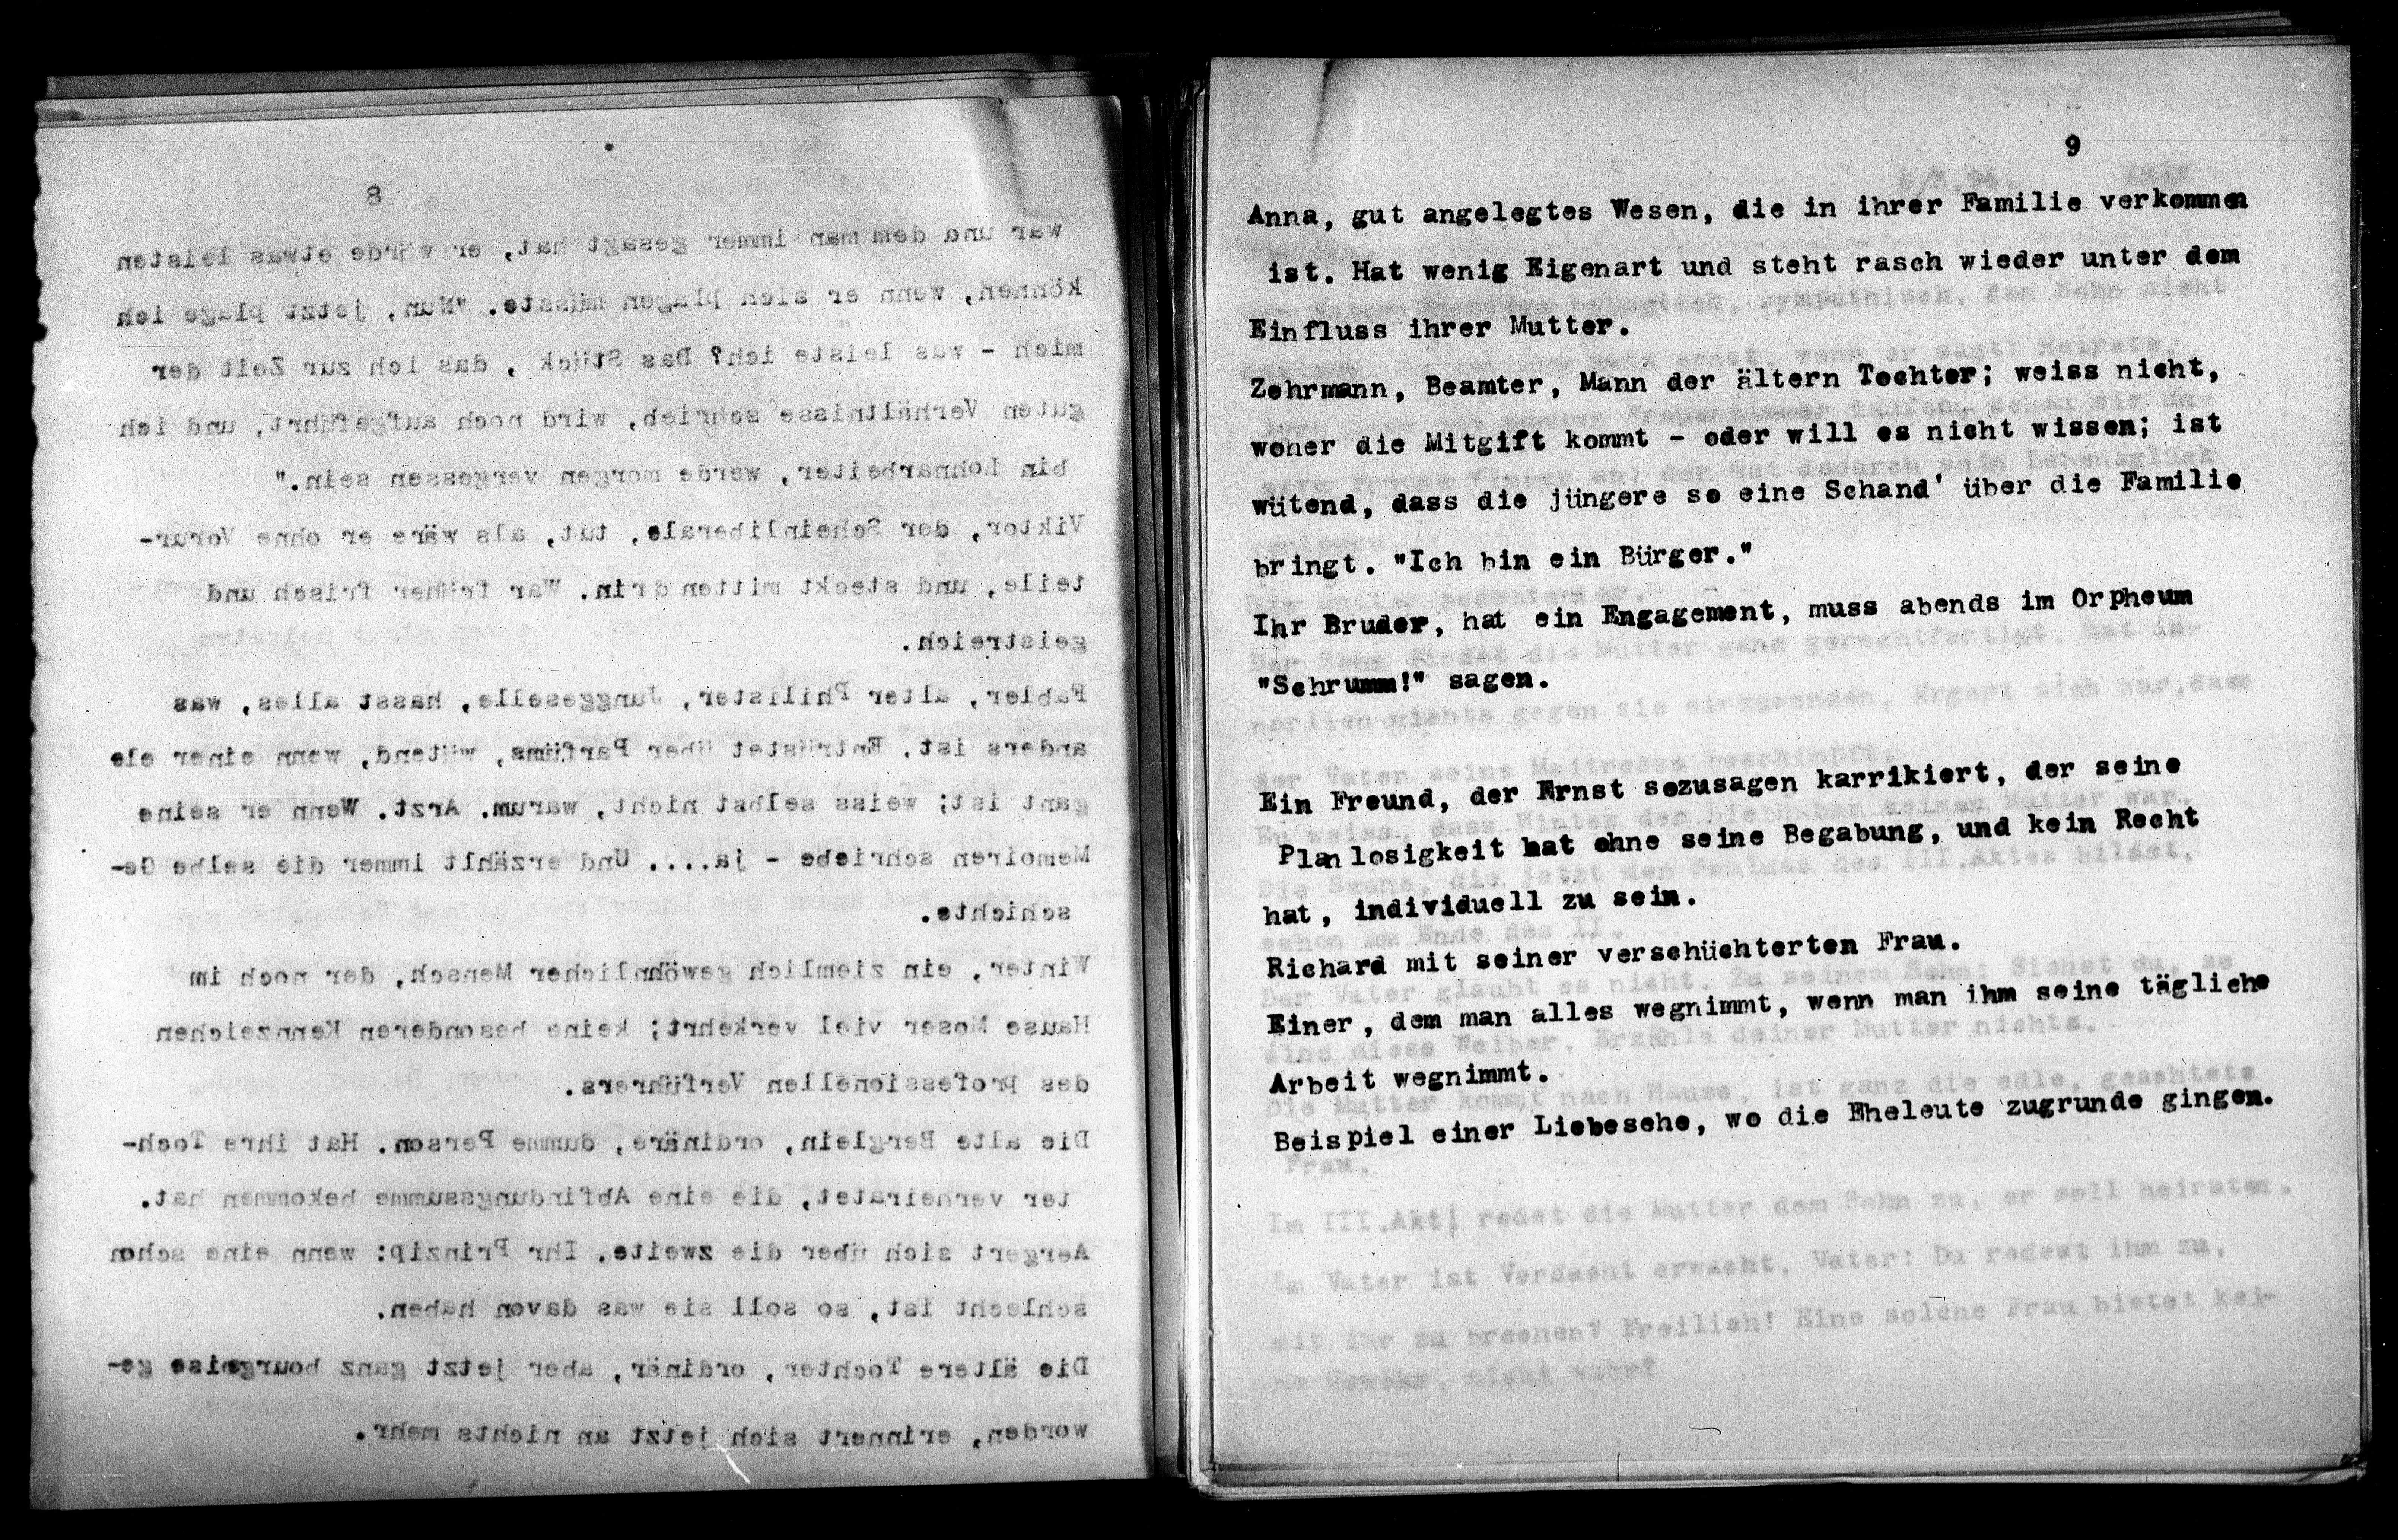 8
war und dem man immer gesagt hat, er würde etwas leisten
können, wenn er sich plagen müsste. "Nun, jetzt plage ich
mich - was leiste ich? Das Stück, das ich zur Zeit der
guten Verhältnisse schrieb, wird noch aufgeführt, und ich
bin Lohnarbeiter, werde morgen vergessen sein."
Viktor, der Scheinliberale, tut, als wäre er ohne Vorur-
teile, und steckt mitten drin. War früher frisch und
geistreich.
Fabler, alter Philister, Junggeselle, hasst alles, was
anders ist. Entrüstet über Parfüms, wütend, wenn einer ele
gant ist; weiss selbst nicht, warum. Arzt. Wenn er seine
Memoiren schriebe - ja.... Und erzählt immer die selbe Ge-
schichte.
Winter, ein ziemlich gewöhnlicher Mensch, der noch im
Hause Moser viel verkehrt; keine besonderen Kennzeichen
des professionellen Verführers.
Die alte Berglein, ordinäre, dumme Person. Hat ihre Toch-
ter verheiratet, die eine Abfindungssumme bekommen hat.
Aergert sich über die zweite. Ihr Prinzip: wenn eine schon
schlecht ist, so soll sie was davon haben.
Die ältere Tochter, ordinär, aber jetzt ganz bourgeoise ge-
worden, erinnert sich jetzt an nichts mehr.
9
Anna, gut angelegtes Wesen, die in ihrer Familie verkommen
ist. Hat wenig Eigenart und steht rasch wieder unter dem
Einfluss ihrer Mutter.
Zehrmann, Beamter, Mann der ältern Tochter; weiss nicht,
woher die Mitgift kommt - oder will es nicht wissen; ist
wütend, dass die jüngere so eine Schand' über die Familie
bringt. "Ich bin ein Bürger."
Ihr Bruder, hat ein Engagement, muss abends im Orpheum
"Schrumm!" sagen.
Ein Freund, der Ernst sozusagen karrikiert, der seine
Planlosigkeit hat ohne seine Begabung, und kein Recht
hat, individuell zu sein.
Richard mit seiner verschüchterten Frau.
Einer, dem man alles wegnimmt, wenn man ihm seine tägliche
Arbeit wegnimmt.
Beispiel einer Liebesehe, wo die Eheleute zugrunde gingen.
Im III.Akt redet die Mutter dem Sohn zu, er soll heiraten.
Im Vater ist Verdacht erwacht. Vater: Du redest ihm zu,
mit ihr zu brechen? Freilich! Eine solche Frau bietet kei-